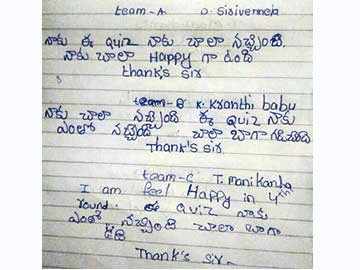 team-A D Sirivennela
నాకు ఈ Quiz నాకు చాలా నచ్చింది.
నాకు చాలా Happy గా ఉంది
thank's sir
team-B K. Kranthi babu
నాకు చాలా నచ్చింది ఈ Quiz నాకు
ఎంతో నచ్చింది చాలా బాగా
Thank's sir
team-C T. Manikanta
I am feel Happy in 4th
round. ఈ Quiz నాకు
ఎంతో నచ్చింది చాలా బాగా
ఉంది
Thank's sir.